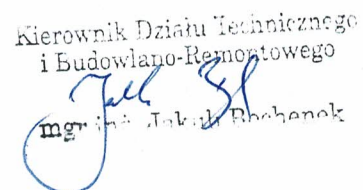 Kierownik Działu Technicznego
i Budowlano-Remontowego
mgr inż. Jakub